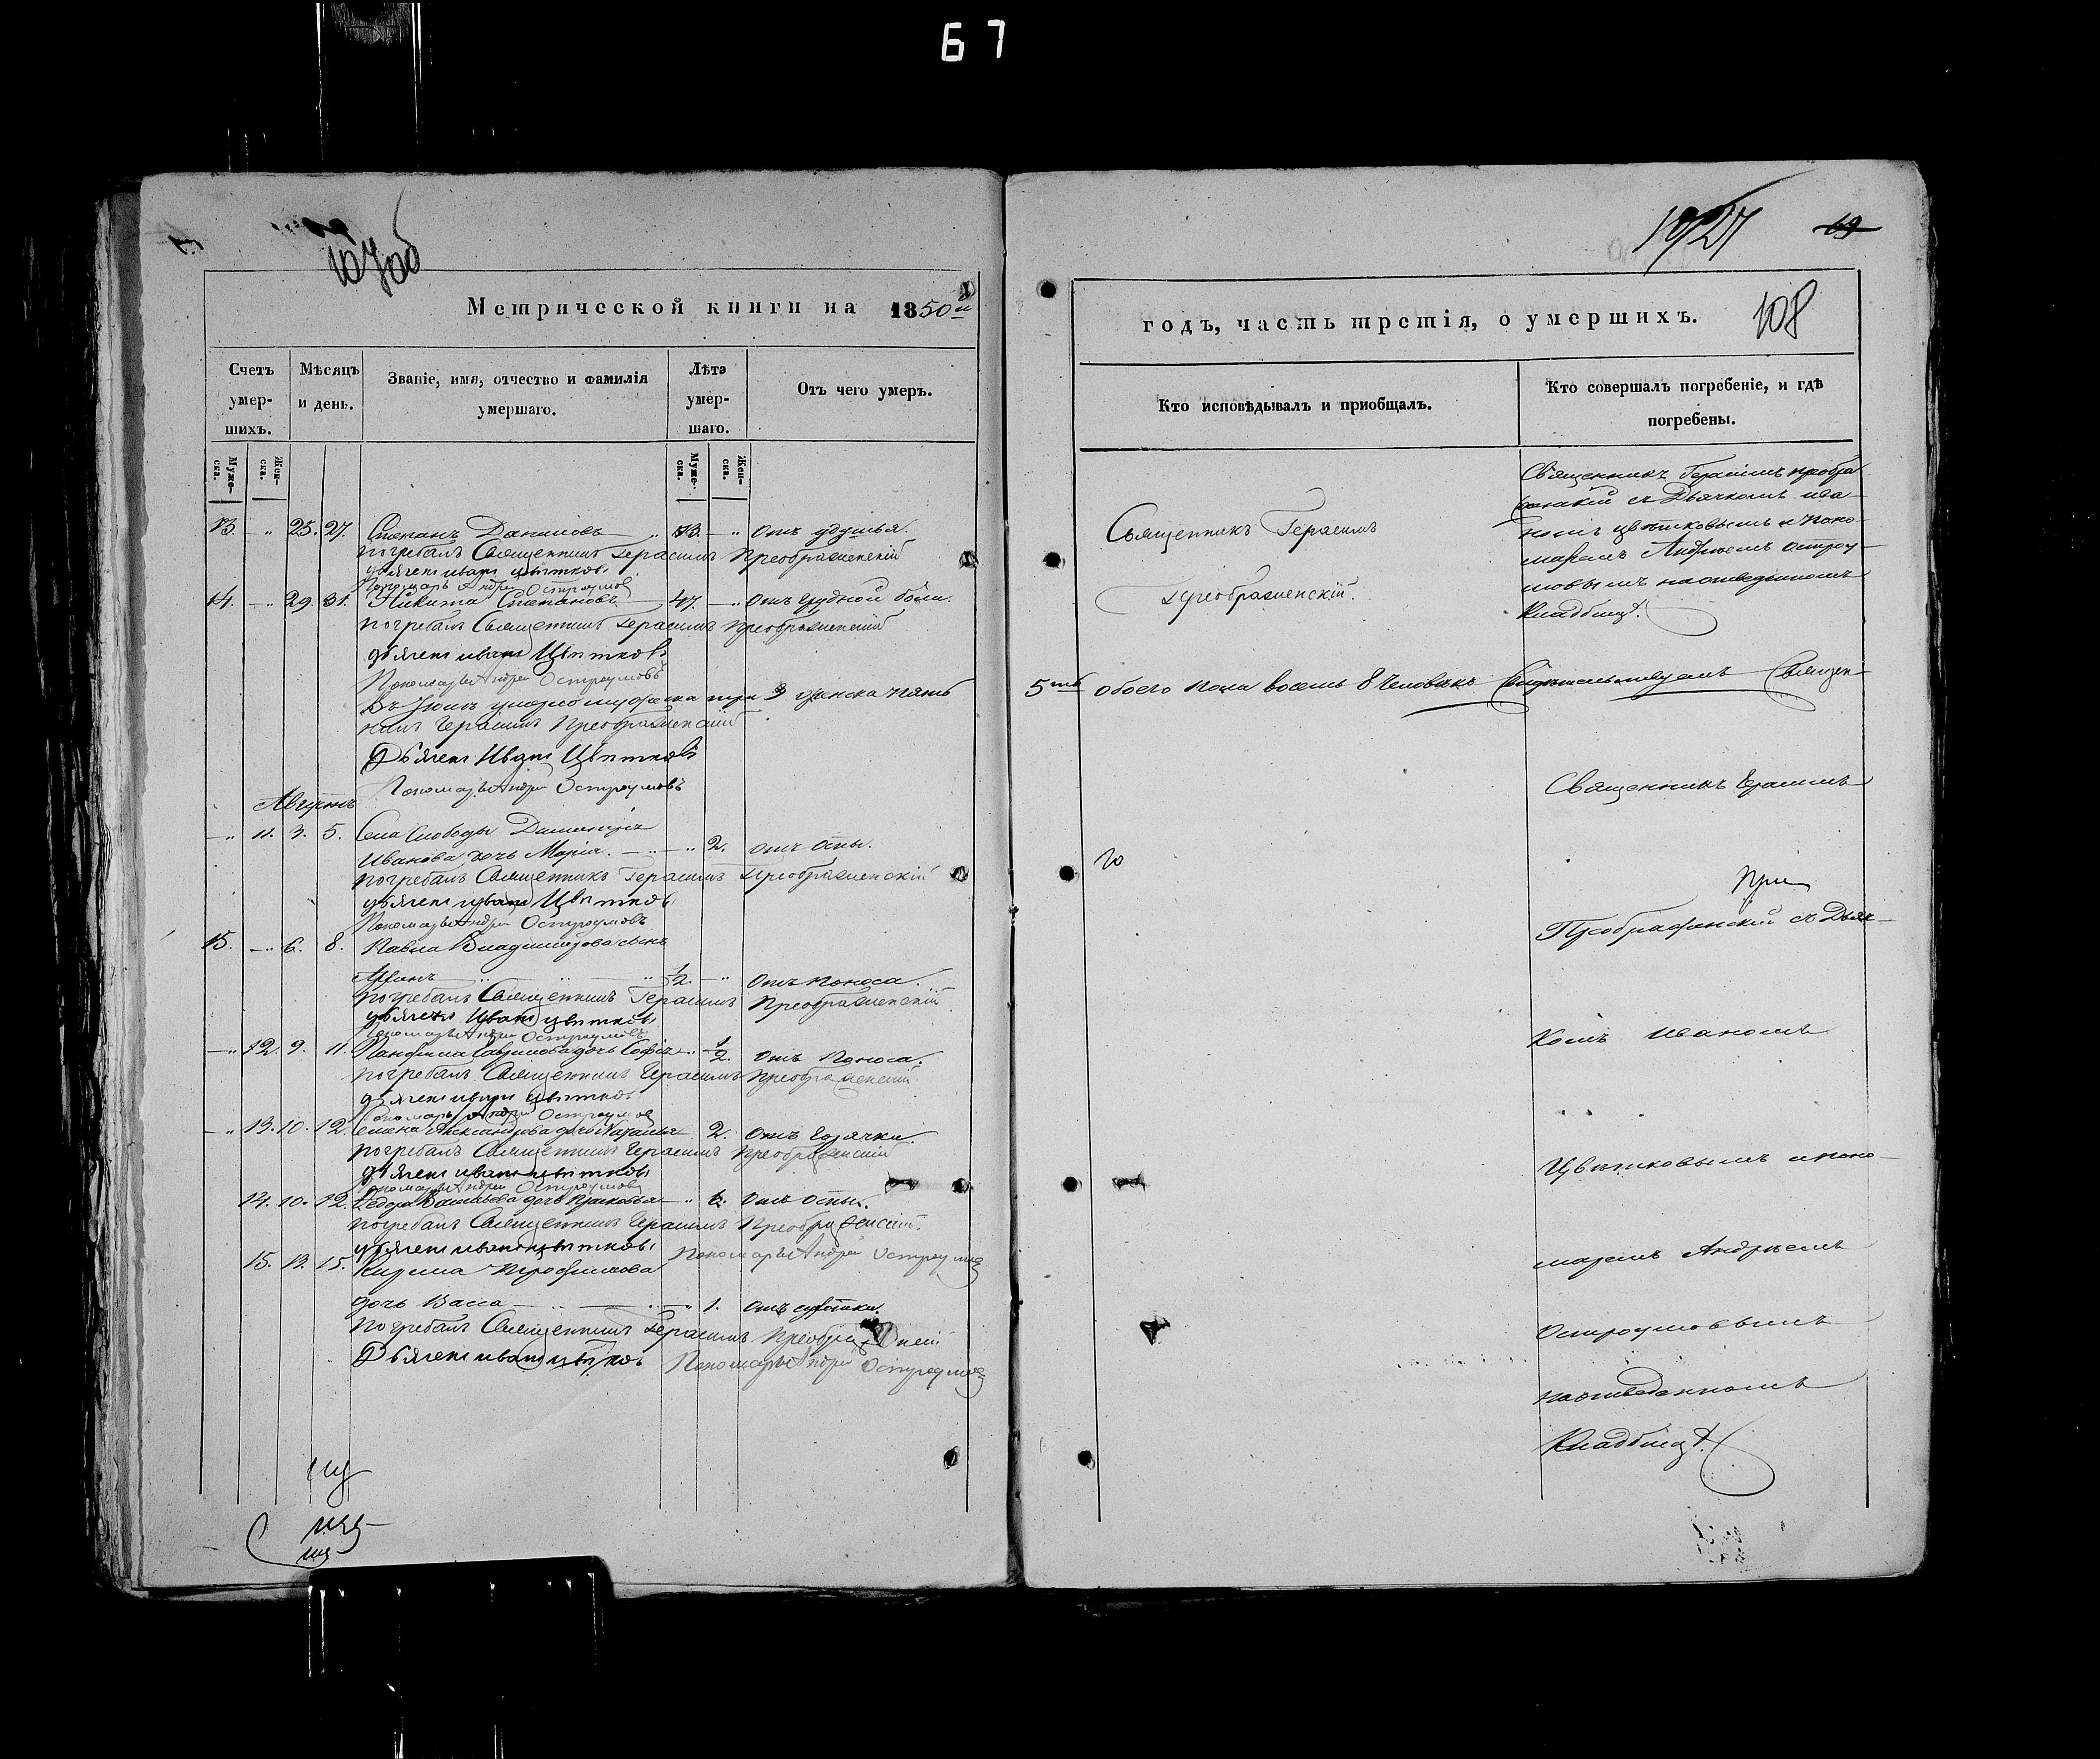 67
107об
Метрической книги на 1850й
Счетъ умер- шихъ.
Мѣсяцъ и день.
Званіе, имя, отчество и фамилія умершаго.
Лѣта умер- шаго.
Отъ чего умеръ.
Муже- ска.
Жен- ска.
Муже- ска.
Жен- ска.
13. — „ 25. 27. Степанъ Даниловъ — „ 73. — „ отъ удушья.
погребалъ Священникъ Герасимъ Преображенскій
дьячекъ иванъ цвѣтковъ
Пономарь Андрей Остроумовъ
14. — „ 29. 31. Никита Степановъ — 47. — „ Отъ грудной боли.
погребалъ Священникъ Герасимъ Преображенскій
дьячекъ иванъ Цвѣтковъ
Пономарь Андрей Остроумовъ
Въ Июлѣ умерло мужеска три 3 женска пять
никъ Герасимъ Преображенскій
Дьячекъ Иванъ Цвѣтковъ
Пономарь Андрей Остроумовъ
Августъ
— „ 11. 3. 5. Села Слободы Димитрія
Иванова дочь Марія. — „ — „ 2. отъ оспы.
погребалъ Священникъ Герасимъ Преображенскій
дьячекъ иванъ Цвѣтковъ
Пономарь Андрей Остроумовъ
15. — „ 6. 8. Павла Владимирова сынъ
— „ 1/2. — „ Отъ поноса.
погребалъ Священникъ Герасимъ Преображенскій
дьячекъ Иванъ цвѣтковъ
Пономарь Андрей Остроумовъ
— „ 12. 9. 11. Панфила Гаврилова дочь Софія — „ 1/2. отъ Поноса.
погребалъ Священникъ Герасимъ Преображенскій
дьячекъ иванъ цвѣтковъ
Пономарь Андрей Остроумовъ
— „ 13. 10. 12. Семена Александрова дочь Наталья 2. Отъ Горячки.
погребалъ Священникъ Герасимъ Преображенскій
дьячекъ иванъ цвѣтковъ
Пономарь Андрей Остроумовъ
14. 10. 12. Федора Васильева дочь Прасковья — „ Отъ Оспы.
погребалъ Священникъ Герасимъ Преображенскій.
дьячекъ иванъ цвѣтковъ Пономарь Андрей Остроумовъ
15. 13. 15. Кирила Трофимова
дочь Васса — „ — „ 1. Отъ
погребалъ Священникъ Герасимъ Преображенскій
Дьячекъ иванъ цвѣтковъ Пономарь Андрей Остроумовъ
69
годъ, часть третія, о умершихъ.
108
Кто исповѣдывалъ и пріобщалъ.
Кто совершалъ погребеніе, и гдѣ погребены.
Священникъ Герасимъ
Преображенскій.
Священникъ Герасимъ преобра
женскій съ Дьячкомъ ива-
номъ цвѣтковымъ и поно-
маремъ Андреемъ остроу-
мовымъ на отведенномъ
Кладбищѣ.
5ть обоего пола восемь 8 Человѣкъ Свидѣтельствуемъ Священ-
Священникъ Герасимъ
при
Преображенскій съ Дьяч-
Комъ Иваномъ
Цвѣтковымъ и поно-
маремъ Андреемъ
Остроумовымъ
на отведенномъ
Кладбищѣ.